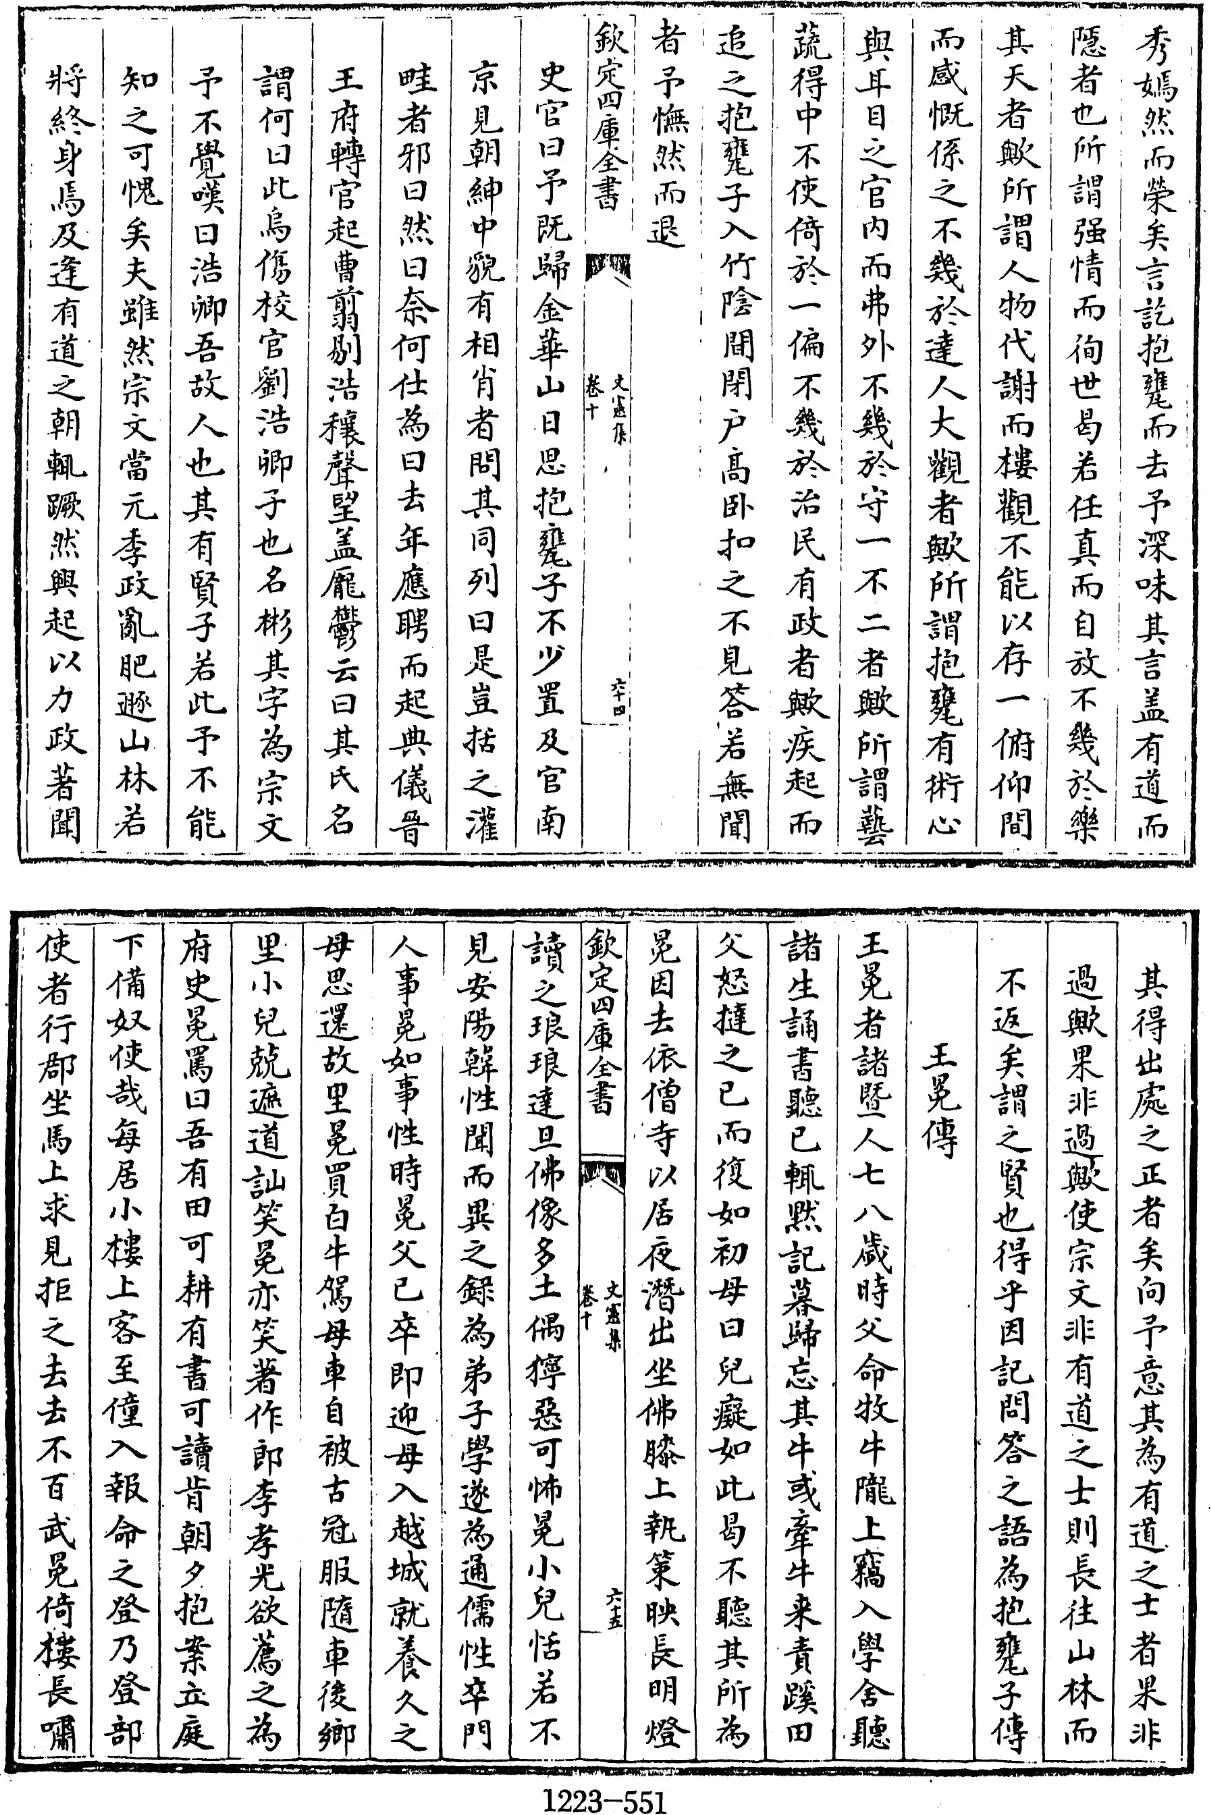 秀嫣然而榮矣言訖抱甕而去予深味其言盖有道而
隱者也所謂强情而徇世曷若任真而自放不幾於樂
其天者歟所謂人物代謝而樓觀不能以存一俯仰間
而感慨係之不幾於達人大觀者歟所謂抱甕有術心
與耳目之官内而弗外不幾於守一不二者歟所謂藝
蔬得中不使倚於一偏不幾於治民有政者歟疾起而
追之抱甕子入竹陰間閉户高卧扣之不見答若無聞
者予憮然而退
欽定四庫全書
文憲集
卷十
六十四
史官曰予既歸金華山日思抱甕子不少置及官南
京見朝紳中貌有相肖者問其同列曰是豈括之灌
畦者邪曰然曰奈何仕為曰去年應聘而起典儀晉
王府轉官起曹翦剔浩穰聲望盖龎鬱云曰其氏名
謂何曰此烏傷校官劉浩卿子也名彬其字為宗文
予不覺嘆曰浩卿吾故人也其有賢子若此予不能
知之可愧矣夫雖然宗文當元季政亂肥遯山林若
將終身焉及逢有道之朝輒蹶然興起以力政著聞
其得出處之正者矣向予意其為有道之士者果非
過歟果非過歟使宗文非有道之士則長往山林而
不返矣謂之賢也得乎因記問答之語為抱甕子傳
王冕傳
王冕者諸暨人七八歲時父命牧牛隴上竊入學舍聽
諸生誦書聽已輒黙記暮歸忘其牛或牽牛来責蹊田
父怒撻之已而復如初母曰兒癡如此曷不聽其所為
冕因去依僧寺以居夜潛出坐佛膝上執策映長明燈
欽定四庫全書
文憲集
卷十
六十五
讀之琅琅達旦佛像多土偶獰惡可怖冕小兒恬若不
見安陽韓性聞而異之録為弟子學遂為通儒性卒門
人事冕如事性時冕父已卒即迎母入越城就養久之
母思還故里冕買白牛駕母車自被古冠服隨車後鄉
里小兒競遮道訕笑冕亦笑著作郎李孝光欲薦之為
府史冕罵曰吾有田可耕有書可讀肯朝夕抱案立庭
下備奴使哉每居小樓上客至僮入報命之登乃登部
使者行郡坐馬上求見拒之去去不百武冕倚樓長嘯
1223-551